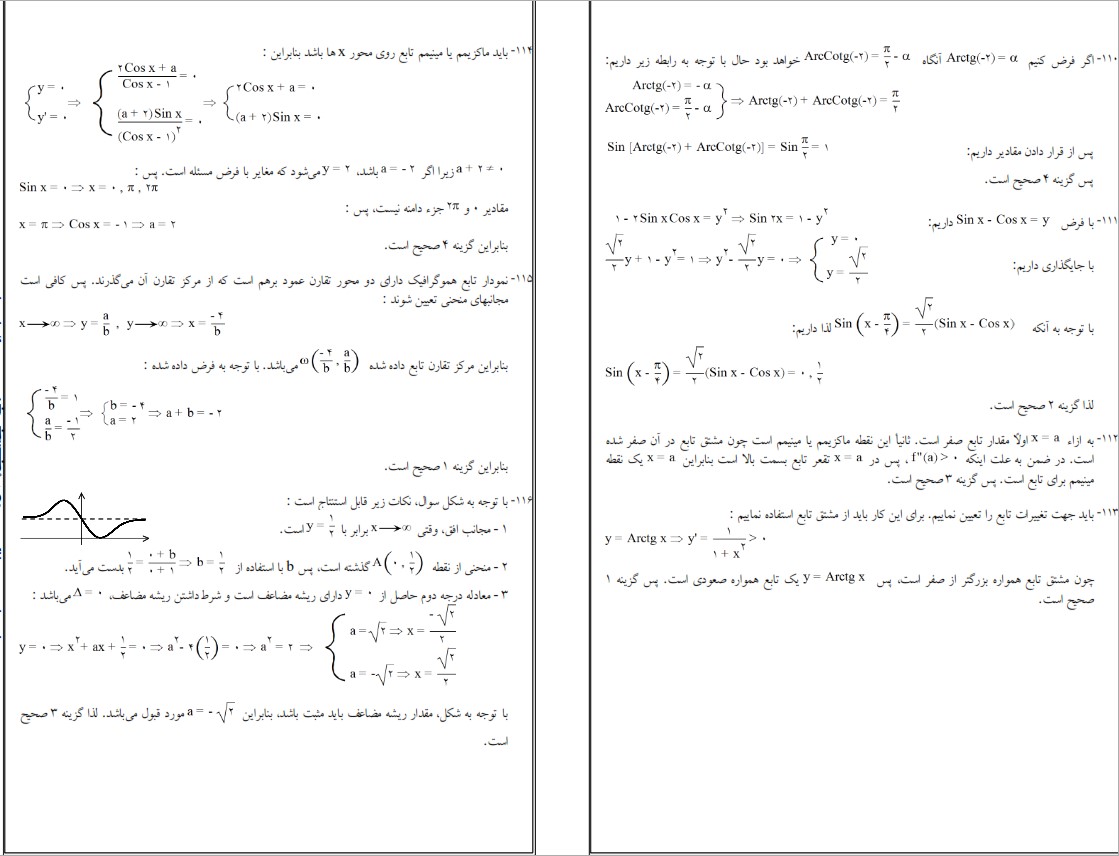 ۱۱۰- اگر فرض کنیم Arctg(-۲) = α آنگاه ArcCotg(-۲) = π/۲ - α خواهد بود حال با توجه به رابطه زیر داریم:
Arctg(-۲) = - α
ArcCotg(-۲) = π/۲ - α } ⇒ Arctg(-۲) + ArcCotg(-۲) = π/۲
پس از قرار دادن مقادیر داریم: Sin [Arctg(-۲) + ArcCotg(-۲)] = Sin π/۲ = ۱
پس گزینه ۴ صحیح است.
۱۱۱- با فرض Sin x - Cos x = y داریم: ۱ - ۲Sin x Cos x = y² ⇒ Sin ۲x = ۱ - y²
با جایگذاری داریم: √۲/۲ y + ۱ - y² = ۱ ⇒ y² - √۲/۲ y = ۰ ⇒ { y = ۰
y = √۲/۲
با توجه به آنکه Sin (x - π/۴) = √۲/۲ (Sin x - Cos x) لذا داریم:
Sin (x - π/۴) = √۲/۲ (Sin x - Cos x) = ۰ , ۱/۲
لذا گزینه ۲ صحیح است.
۱۱۲- به ازاء x = a اولاً مقدار تابع صفر است. ثانیاً این نقطه ماکزیمم یا مینیمم است چون مشتق تابع در آن صفر شده
است. در ضمن به علت اینکه f"(a) > ۰ ، پس در x = a تقعر تابع بسمت بالا است بنابراین x = a یک نقطه
مینیمم برای تابع است. پس گزینه ۳ صحیح است.
۱۱۳- باید جهت تغییرات تابع را تعیین نماییم. برای این کار باید از مشتق تابع استفاده نماییم :
y = Arctg x ⇒ y' = ۱/(۱ + x²) > ۰
چون مشتق تابع همواره بزرگتر از صفر است، پس y = Arctg x یک تابع همواره صعودی است. پس گزینه ۱
صحیح است.
۱۱۴- باید ماکزیمم یا مینیمم تابع روی محور x ها باشد بنابراین :
{ y = ۰ ⇒ { (۲Cos x + a)/(Cos x - ۱) = ۰ ⇒ { ۲Cos x + a = ۰
y' = ۰ (a + ۲)Sin x/(Cos x - ۱)² = ۰ (a + ۲)Sin x = ۰
a + ۲ ≠ ۰ زیرا اگر a = - ۲ باشد، y = ۲ می‌شود که مغایر با فرض مسئله است. پس :
Sin x = ۰ ⇒ x = ۰ , π , ۲π
مقادیر ۰ و ۲π جزء دامنه نیست، پس :
x = π ⇒ Cos x = - ۱ ⇒ a = ۲
بنابراین گزینه ۴ صحیح است.
۱۱۵- نمودار تابع هموگرافیک دارای دو محور تقارن عمود برهم است که از مرکز تقارن آن می‌گذرند. پس کافی است
مجانبهای منحنی تعیین شوند :
x ⟶ ∞ ⇒ y = a/b , y ⟶ ∞ ⇒ x = -۴/b
بنابراین مرکز تقارن تابع داده شده ω(-۴/b , a/b) می‌باشد. با توجه به فرض داده شده :
{ -۴/b = ۱ ⇒ { b = - ۴ ⇒ a + b = - ۲
a/b = -۱/۲ a = ۲
بنابراین گزینه ۱ صحیح است.
۱۱۶- با توجه به شکل سوال، نکات زیر قابل استنتاج است :
۱ - مجانب افق، وقتی x ⟶ ∞ برابر با y = ۱/۲ است.
۲ - منحنی از نقطه A(۰ , ۱/۲) گذشته است، پس b با استفاده از ۱/۲ = (۰ + b)/(۰ + ۱) ⇒ b = ۱/۲ بدست می‌آید.
۳ - معادله درجه دوم حاصل از y = ۰ دارای ریشه مضاعف است و شرط داشتن ریشه مضاعف، Δ = ۰ می‌باشد :
y = ۰ ⇒ x² + ax + ۱/۲ = ۰ ⇒ a² - ۴(۱/۲) = ۰ ⇒ a² = ۲ ⇒ { a = √۲ ⇒ x = -√۲/۲
a = -√۲ ⇒ x = √۲/۲
با توجه به شکل، مقدار ریشه مضاعف باید مثبت باشد، بنابراین a = - √۲ مورد قبول می‌باشد. لذا گزینه ۳ صحیح
است.